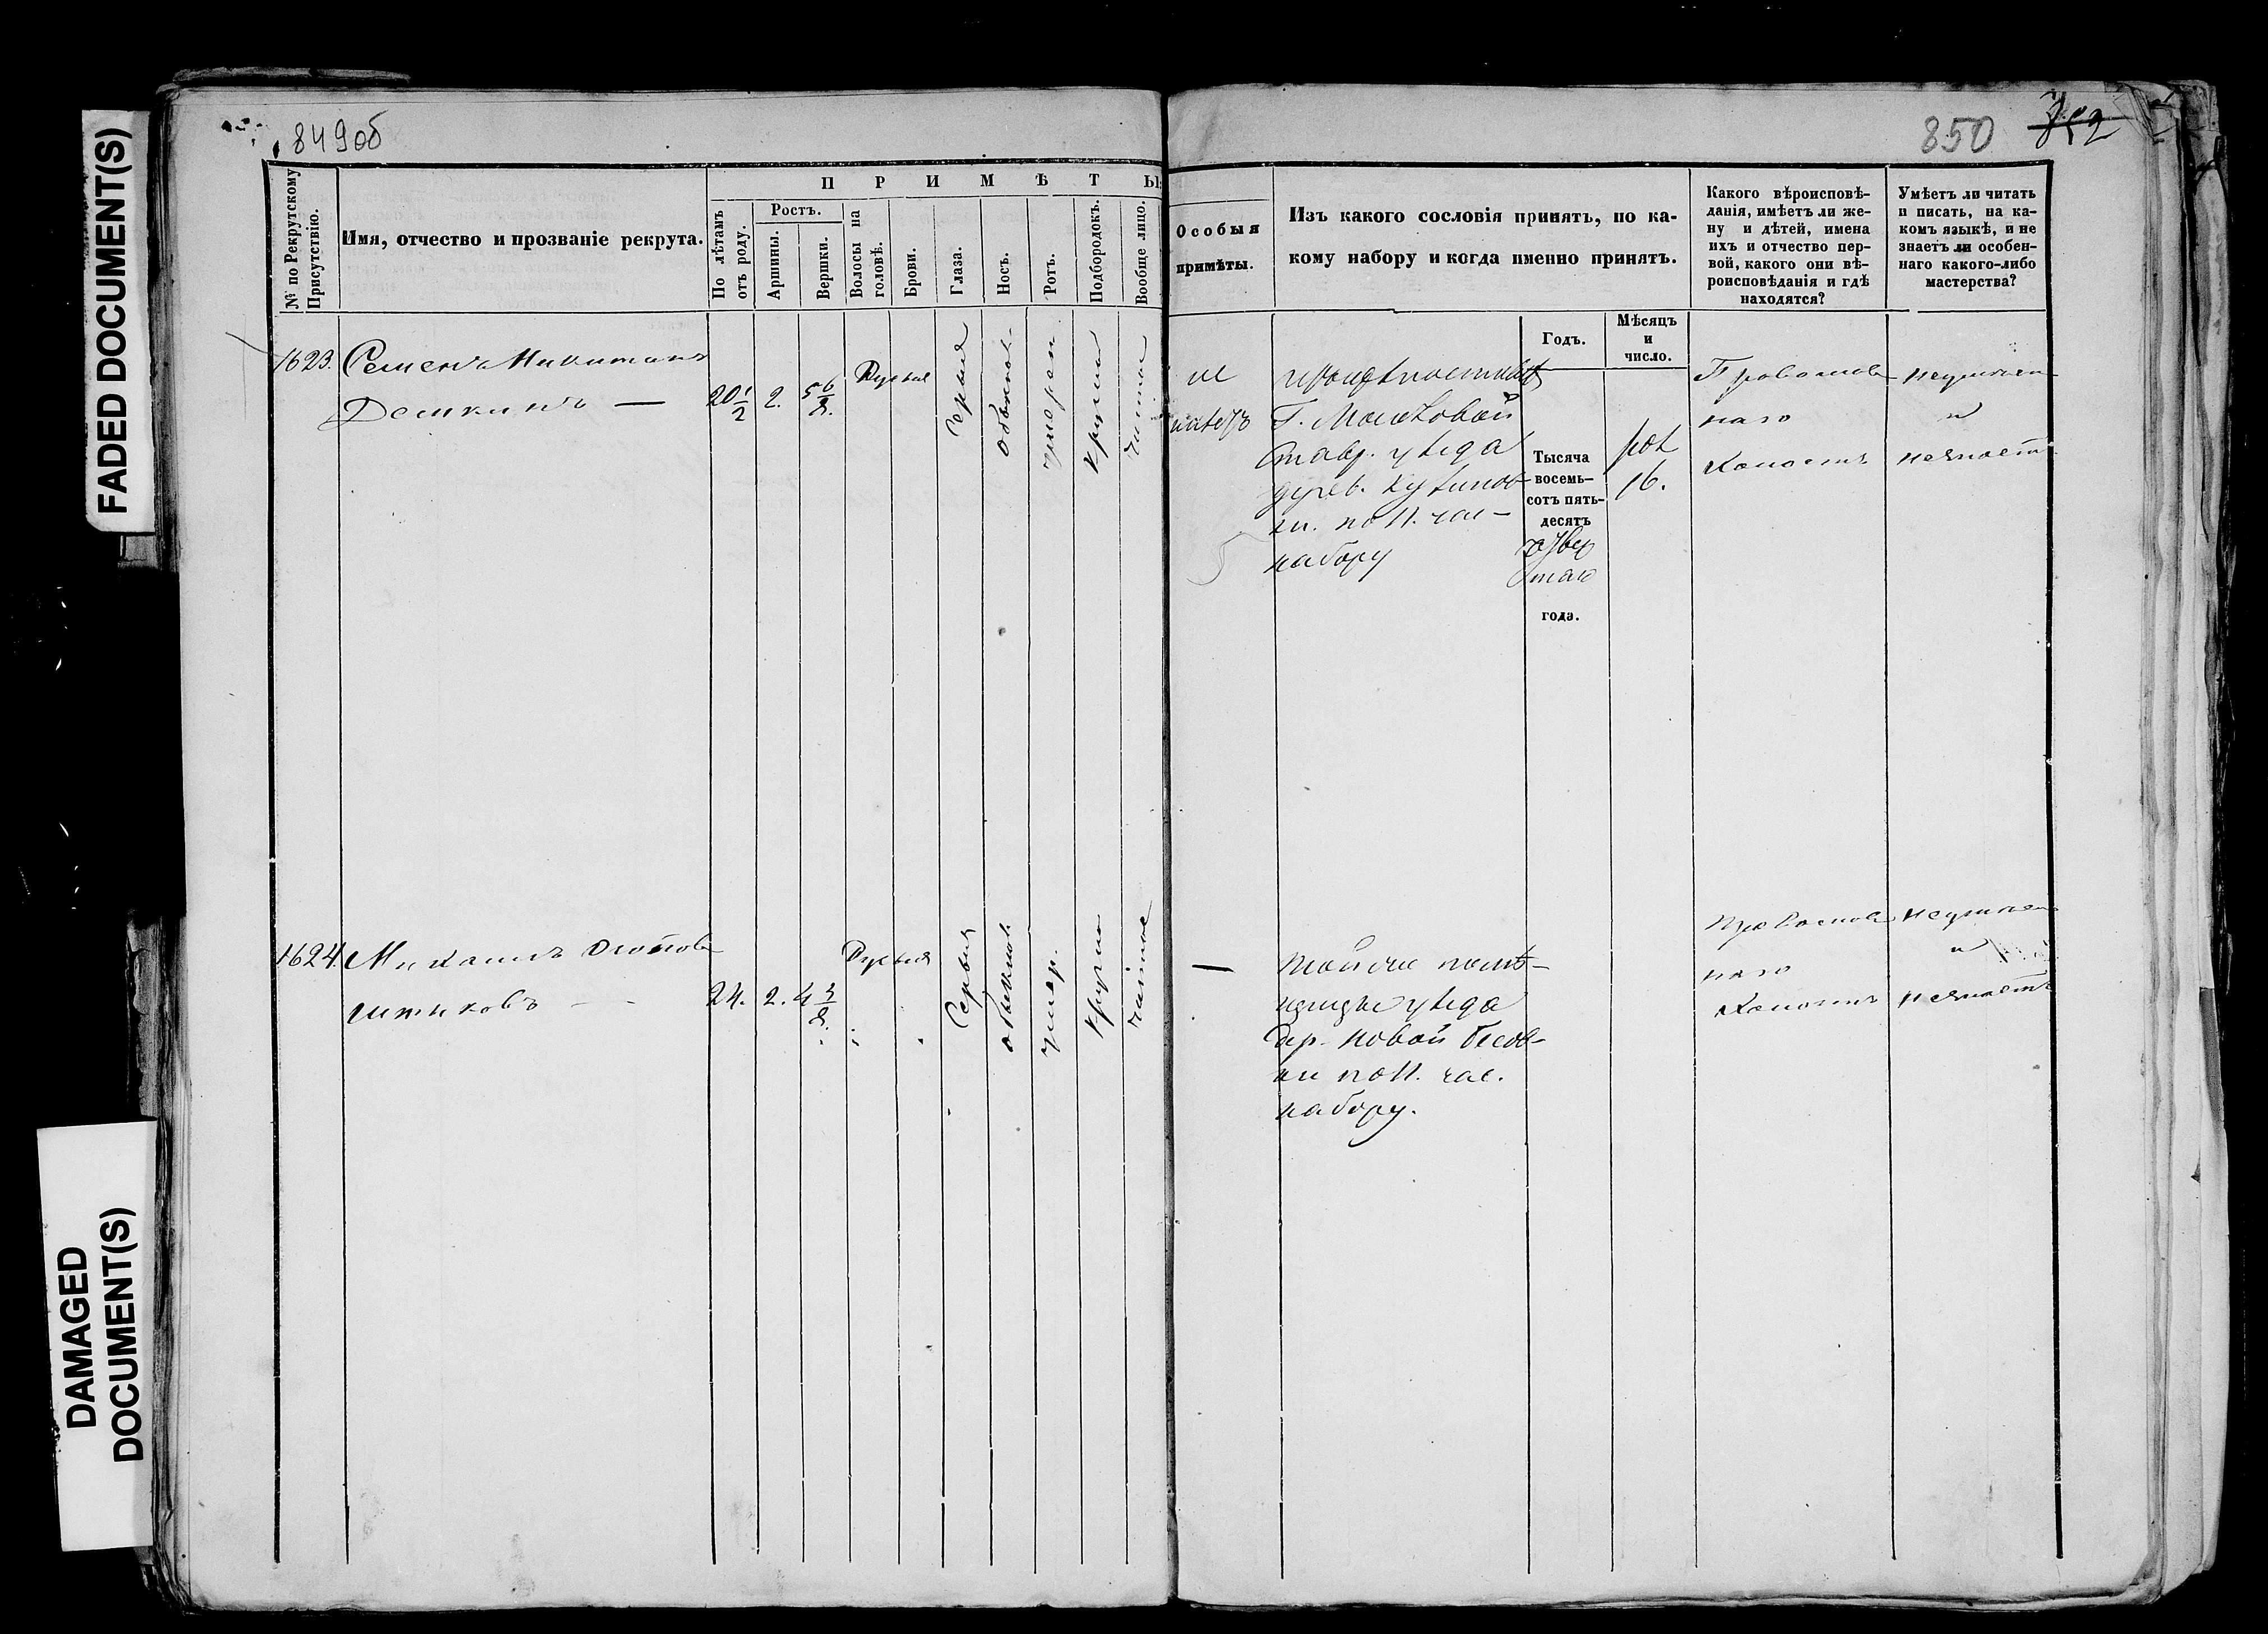 FADED DOCUMENT(S)
DAMAGED
DOCUMENT(S)
849об
850
852
№ по Рекрутскому
Присутствію.
Имя, отчество и прозваніе рекрута.
П Р И М Ѣ Т Ы:
По лѣтамъ
отъ роду.
Ростъ.
Аршины.
Вершки.
Волосы на
головѣ.
Брови.
Глаза.
Носъ.
Ротъ.
Подбородокъ.
Вообще лицо.
Особыя
примѣты.
Изъ какого сословія принятъ, по ка-
кому набору и когда именно принятъ.
Годъ.
Мѣсяцъ
и
число.
Какого вѣроисповѣ-
данія, имѣетъ ли же-
ну и дѣтей, имена
ихъ и отчество пер-
вой, какого они вѣ-
роисповѣданія и гдѣ
находятся?
Умѣетъ ли читать
и писать, на ка-
комъ языкѣ, и не
знаетъ ли особен-
наго какого-либо
мастерства?
1623.
Семенъ Никитинъ
Демкинъ —
20 1/2
2.
5 6/8.
Русыя
Серыя
обыкнов.
умерен
Кругл
чистое
не
имѣетъ
Г.
Став. уѣзда
дерев.
ки. по 11. час-
набору
Тысяча
восемь-
сотъ пять-
десятъ
четвер
таго
года.
16.
Православ
наго
Холостъ
неумѣетъ
и
незнаетъ
1624.
Михаилъ Осипов
Штыковъ —
24.
2.
4
Русыя
Серыя
обыкнов
умер.
Кругло
чистое
—
Той же помѣ-
щицы уѣзда
дер. Новой Бесов-
ки по 11. час.
набору.
Православ
наго
Холостъ
неумѣетъ
и
незнаетъ